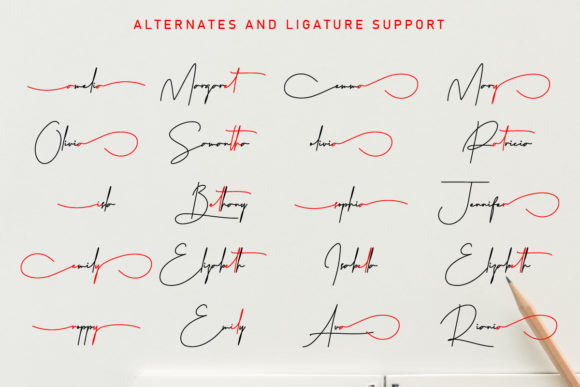 ALTERNATES AND LIGATURE SUPPORT
amelia Margaret emma Mary
Olivia Samantha olivia Patricia
isla Bethany sophia Jennifer
emily Elizabeth Isabella Elizabeth
poppy Emily Ava